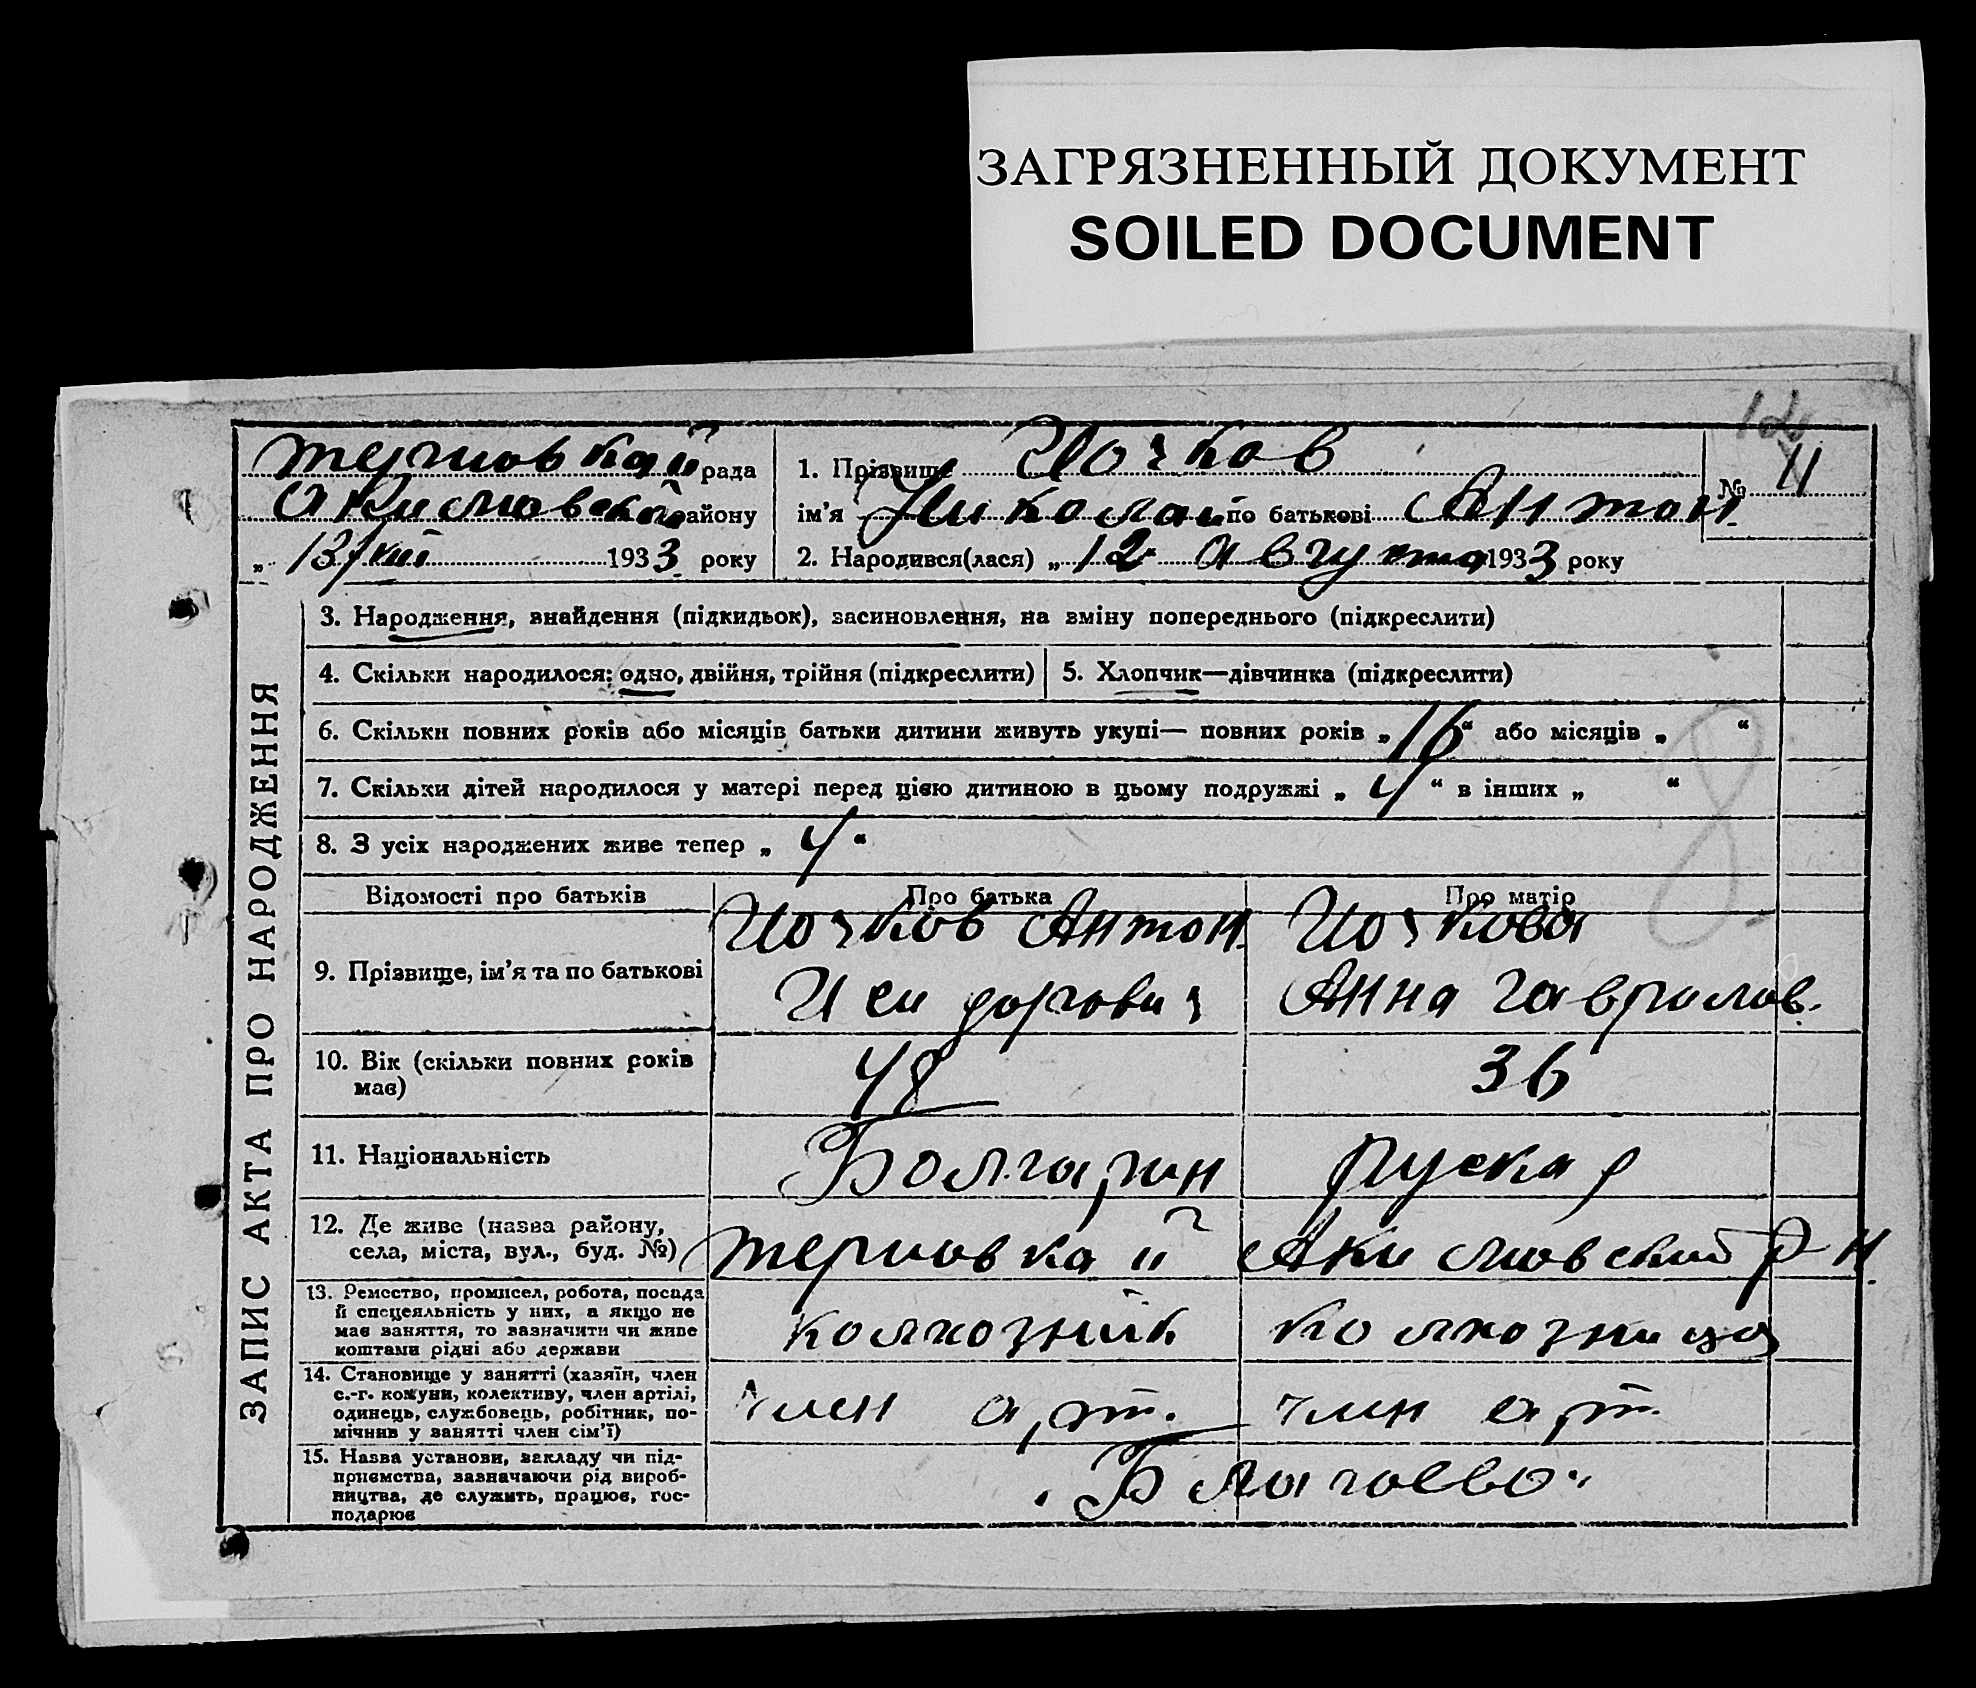 ЗАГРЯЗНЕННЫЙ ДОКУМЕНТ
SOILED DOCUMENT
12
терновкай рада
Акимовской району
„ 13/VIII 1933 року
1. Прізвище Иочков
ім'я Николай по батькові Антон.
№ 11
2. Народився(лася) „ 12 августа 1933 року
ЗАПИС АКТА ПРО НАРОДЖЕННЯ
3. Народження, знайдення (підкидьок), засиновлення, на зміну попереднього (підкреслити)
4. Скільки народилося: одно, двійня, трійня (підкреслити)
5. Хлопчик—дівчинка (підкреслити)
6. Скільки повних років або місяців батьки дитини живуть укупі— повних років „ 16 “ або місяців „ “
7. Скільки дітей народилося у матері перед цією дитиною в цьому подружжі „ 4 “ в інших „ “
8. З усіх народжених живе тепер „ 4 “
8
Відомості про батьків
Про батька
Про матір
9. Прізвище, ім'я та по батькові
Иочков Антон.
Исидорович
Иочкова
Анна Гаврилов.
10. Вік (скільки повних років
має)
48
36
11. Національність
Болгарин
руская
12. Де живе (назва району,
села, міста, вул., буд. №)
терновкай Акимовский р-н.
13. Ремество, промисел, робота, посада
й спецеяльність у них, а якщо не
має заняття, то зазначити чи живе
коштами рідні або держави
колхозник
колхозница
14. Становище у занятті (хазяїн, член
с.-г. комуни, колективу, член артілі,
одинець, службовець, робітник, по-
мічник у занятті член сім'ї)
член арт.
член арт.
15. Назва установи, закладу чи під-
приємства, зазначаючи рід вироб-
ництва, де служить, працює, гос-
подарює
„Благоево“